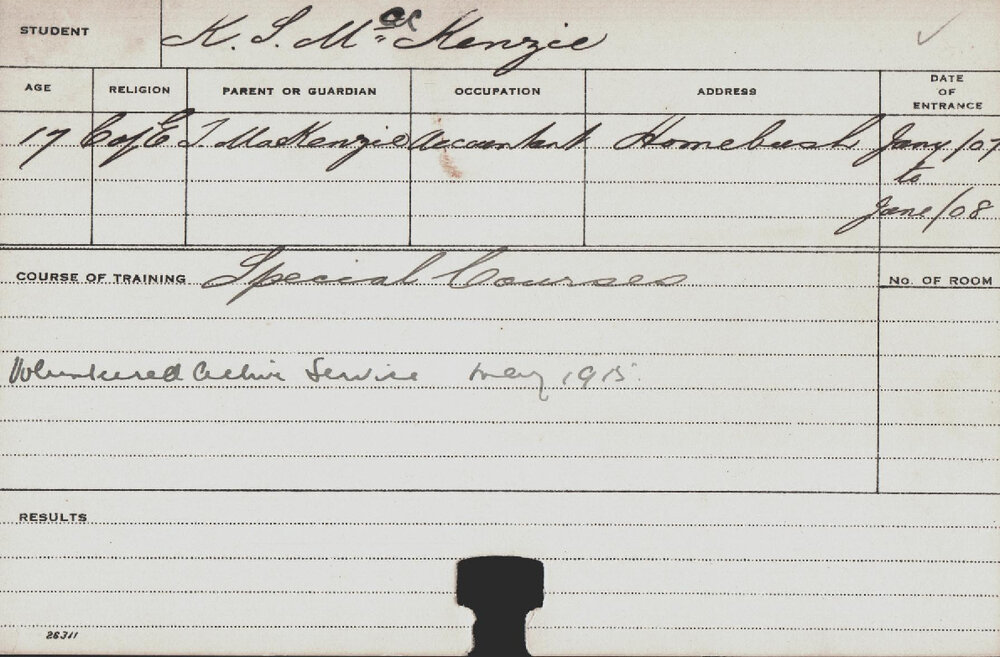 STUDENT K. S. MacKenzie
AGE RELIGION PARENT OR GUARDIAN OCCUPATION ADDRESS DATE OF ENTRANCE
17 C of E J MacKenzie Accountant Homebush Jany/07
to
June/08
COURSE OF TRAINING Special Courses No. OF ROOM
Volunteered Active Service May 1915
RESULTS
26311